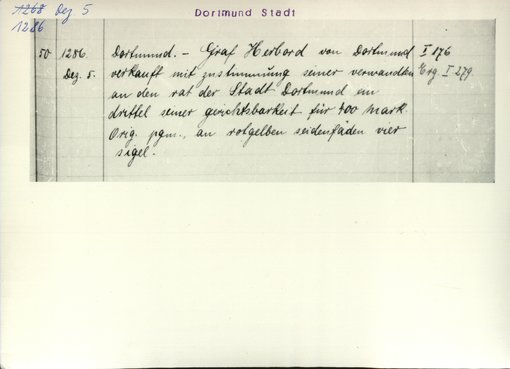 1268 Dez 5
1286
Dortmund Stadt
50 1286. Dortmund. - Graf Herbord von Dortmund I 176
Dez. 5. verkauft mit zustimmung seiner verwandten Erg I 279.
an den rat der Stadt Dortmund ein
drittel seiner gerichtsbarkeit für 400 Mark
Orig. pgm., an rotgelben seidenfäden vier
sigel.